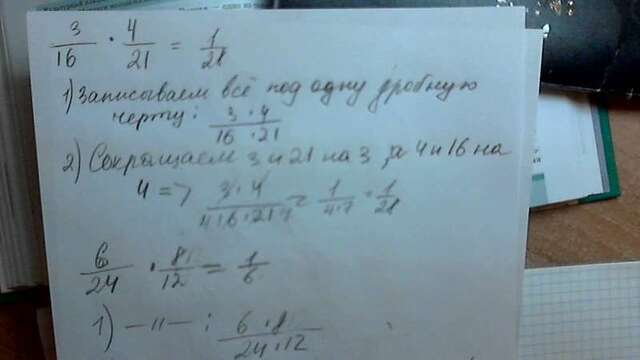 3/16 · 4/21 = 1/28
1) Записываем всё под одну дробную
черту: 3 · 4/16 · 21
2) Сокращаем 3 и 21 на 3, а 4 и 16 на
4 => 3 · 4/ = 1/4·7 = 1/28
6/24 · 8/12 = 1/6
1) —〃— : 6 · 8/24 · 12